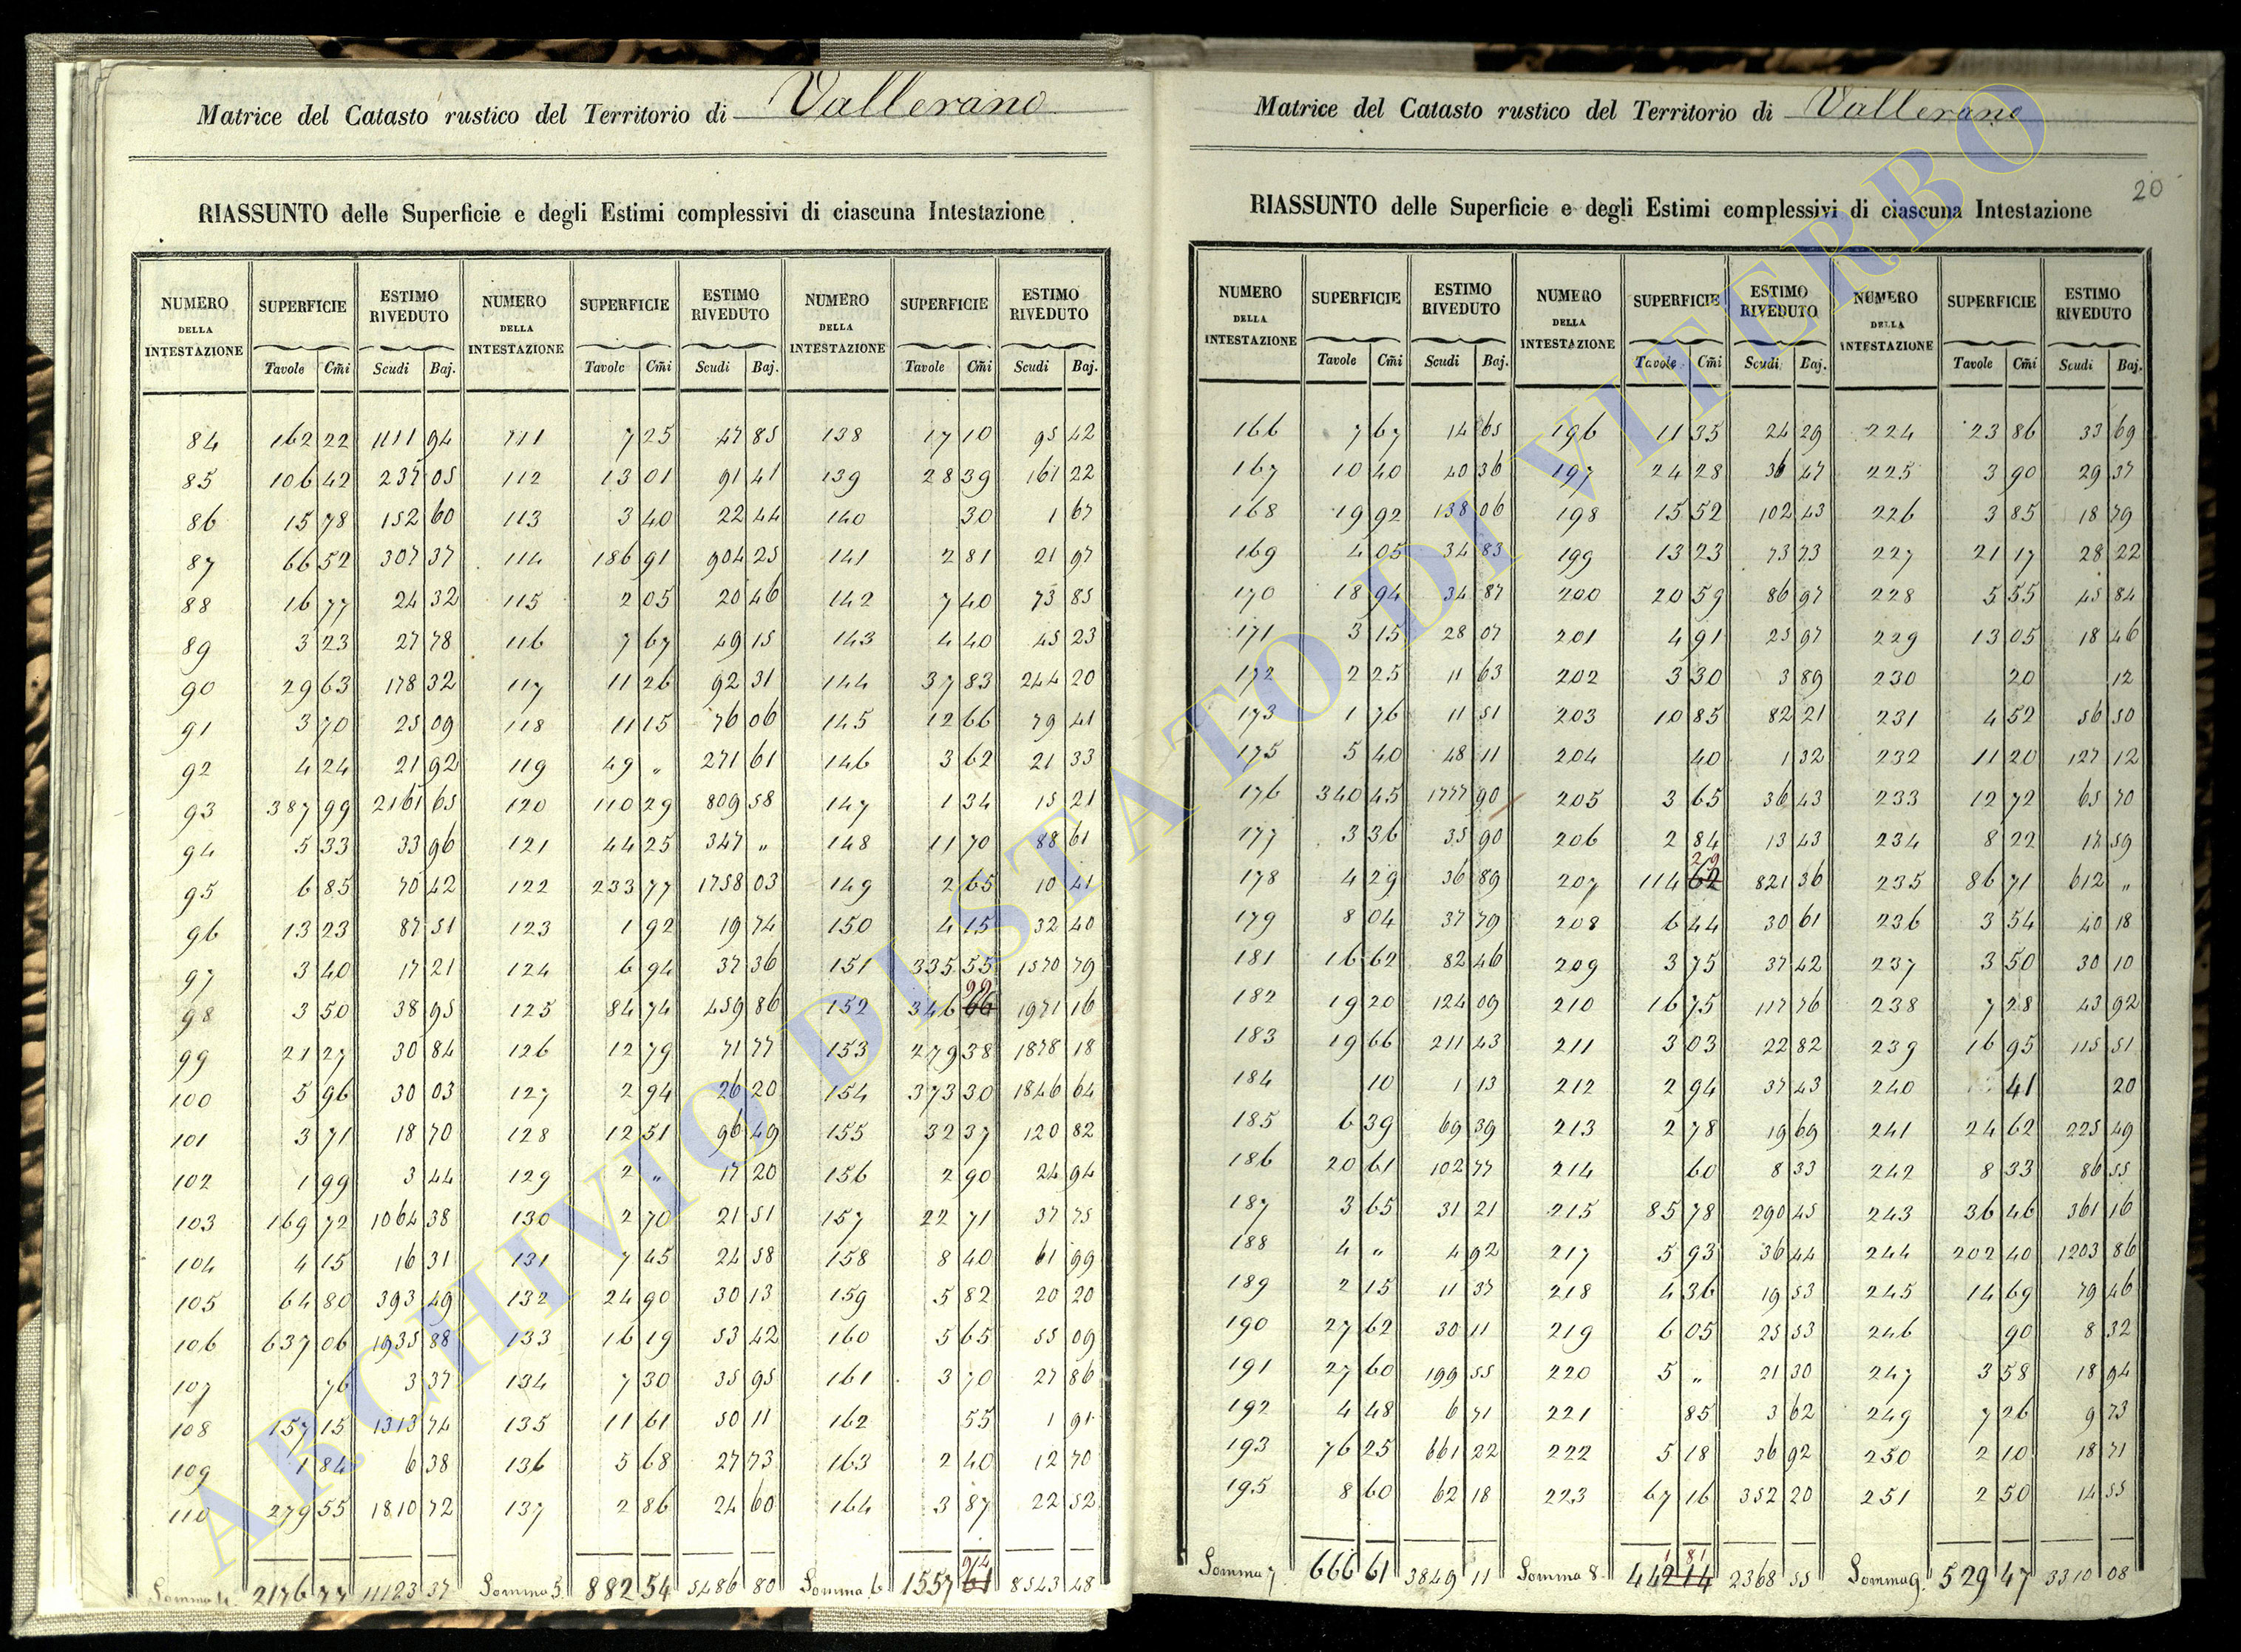 Matrice del Catasto rustico del Territorio di Vallerano
RIASSUNTO delle Superficie e degli Estimi complessivi di ciascuna Intestazione
NUMERO DELLA INTESTAZIONE SUPERFICIE ESTIMO RIVEDUTO NUMERO DELLA INTESTAZIONE SUPERFICIE ESTIMO RIVEDUTO NUMERO DELLA INTESTAZIONE SUPERFICIE ESTIMO RIVEDUTO
Tavole Cm̃i Scudi Baj. Tavole Cm̃i Scudi Baj. Tavole Cm̃i Scudi Baj.
84 162 22 1111 94 111 7 25 47 85 138 17 10 95 42
85 106 42 237 05 112 13 01 91 41 139 28 39 161 22
86 15 78 152 60 113 3 40 22 44 140 30 1 67
87 66 52 307 37 114 186 91 904 25 141 2 81 21 97
88 16 77 24 32 115 2 05 20 46 142 7 40 73 85
89 3 23 27 78 116 7 67 49 15 143 4 40 45 23
90 29 63 178 32 117 11 26 92 31 144 37 83 244 20
91 3 70 25 09 118 11 15 76 06 145 12 66 79 41
92 4 24 21 92 119 49 „ 271 61 146 3 62 21 33
93 387 99 2161 65 120 110 29 809 58 147 1 34 15 21
94 5 33 33 96 121 44 25 347 „ 148 11 70 88 61
95 6 85 70 42 122 233 77 1758 03 149 2 65 10 41
96 13 23 87 51 123 1 92 19 74 150 4 15 32 40
97 3 40 17 21 124 6 94 37 36 151 335 55 1570 79
98 3 50 38 95 125 84 74 459 86 152 346 66 99 1971 16
99 21 27 30 84 126 12 79 71 77 153 279 38 1878 18
100 5 96 30 03 127 2 94 26 20 154 373 30 1846 64
101 3 71 18 70 128 12 51 96 49 155 32 37 120 82
102 1 99 3 44 129 2 „ 17 20 156 2 90 24 94
103 169 72 1064 38 130 2 70 21 51 157 22 71 37 75
104 4 15 16 31 131 7 45 24 58 158 8 40 61 99
105 64 80 393 49 132 24 90 30 13 159 5 82 20 20
106 637 06 1935 88 133 16 19 53 42 160 5 65 55 09
107 76 3 37 134 7 30 35 95 161 3 70 27 86
108 157 15 1313 74 135 11 61 50 11 162 55 1 91
109 1 84 6 38 136 5 68 27 73 163 2 40 12 70
110 279 55 1810 72 137 2 86 24 60 164 3 87 22 52
Somma 4 2176 77 11123 37 Somma 5 882 54 5486 80 Somma 6 1557 61 94 8543 48
Matrice del Catasto rustico del Territorio di Vallerano
20
RIASSUNTO delle Superficie e degli Estimi complessivi di ciascuna Intestazione
NUMERO DELLA INTESTAZIONE SUPERFICIE ESTIMO RIVEDUTO NUMERO DELLA INTESTAZIONE SUPERFICIE ESTIMO RIVEDUTO NUMERO DELLA INTESTAZIONE SUPERFICIE ESTIMO RIVEDUTO
Tavole Cm̃i Scudi Baj. Tavole Cm̃i Scudi Baj. Tavole Cm̃i Scudi Baj.
166 7 67 14 65 196 11 35 24 29 224 23 86 33 69
167 10 40 40 36 197 24 28 36 47 225 3 90 29 37
168 19 92 138 06 198 15 52 102 43 226 3 85 18 79
169 4 05 34 83 199 13 23 73 73 227 21 17 28 22
170 18 94 34 87 200 20 59 86 97 228 5 55 45 84
171 3 15 28 07 201 4 91 25 97 229 13 05 18 46
172 2 25 11 63 202 3 30 3 89 230 20 12
173 1 76 11 51 203 10 85 82 21 231 4 52 56 50
175 5 40 48 11 204 40 1 32 232 11 20 127 12
176 340 45 1777 90 205 3 65 36 43 233 12 72 65 70
177 3 36 35 90 206 2 84 13 43 234 8 22 17 59
178 4 29 36 89 207 114 62 29 821 36 235 86 71 612 „
179 8 04 37 79 208 6 44 30 61 236 3 54 40 18
181 16 62 82 46 209 3 75 37 42 237 3 50 30 10
182 19 20 124 09 210 16 75 117 76 238 7 28 43 92
183 19 66 211 43 211 3 03 22 82 239 16 95 115 51
184 10 1 13 212 2 94 37 43 240 41 20
185 6 39 69 39 213 2 78 19 69 241 24 62 225 49
186 20 61 102 77 214 60 8 33 242 8 33 86 55
187 3 65 31 21 215 85 78 290 45 243 36 46 361 16
188 4 „ 4 92 217 5 93 36 44 244 202 40 1203 86
189 2 15 11 37 218 4 36 19 53 245 14 69 79 46
190 27 62 30 11 219 6 05 25 53 246 90 8 32
191 27 60 199 55 220 5 „ 21 30 247 3 58 18 94
192 4 48 6 71 221 85 3 62 249 7 26 9 73
193 76 25 661 22 222 5 18 36 92 250 2 10 18 71
195 8 60 62 18 223 67 16 352 20 251 2 50 14 55
Somma 7 666 61 3849 11 Somma 8 442 14 1 81 2368 55 Somma 9 529 47 3310 08
ARCHIVIO DI STATO DI VITERBO